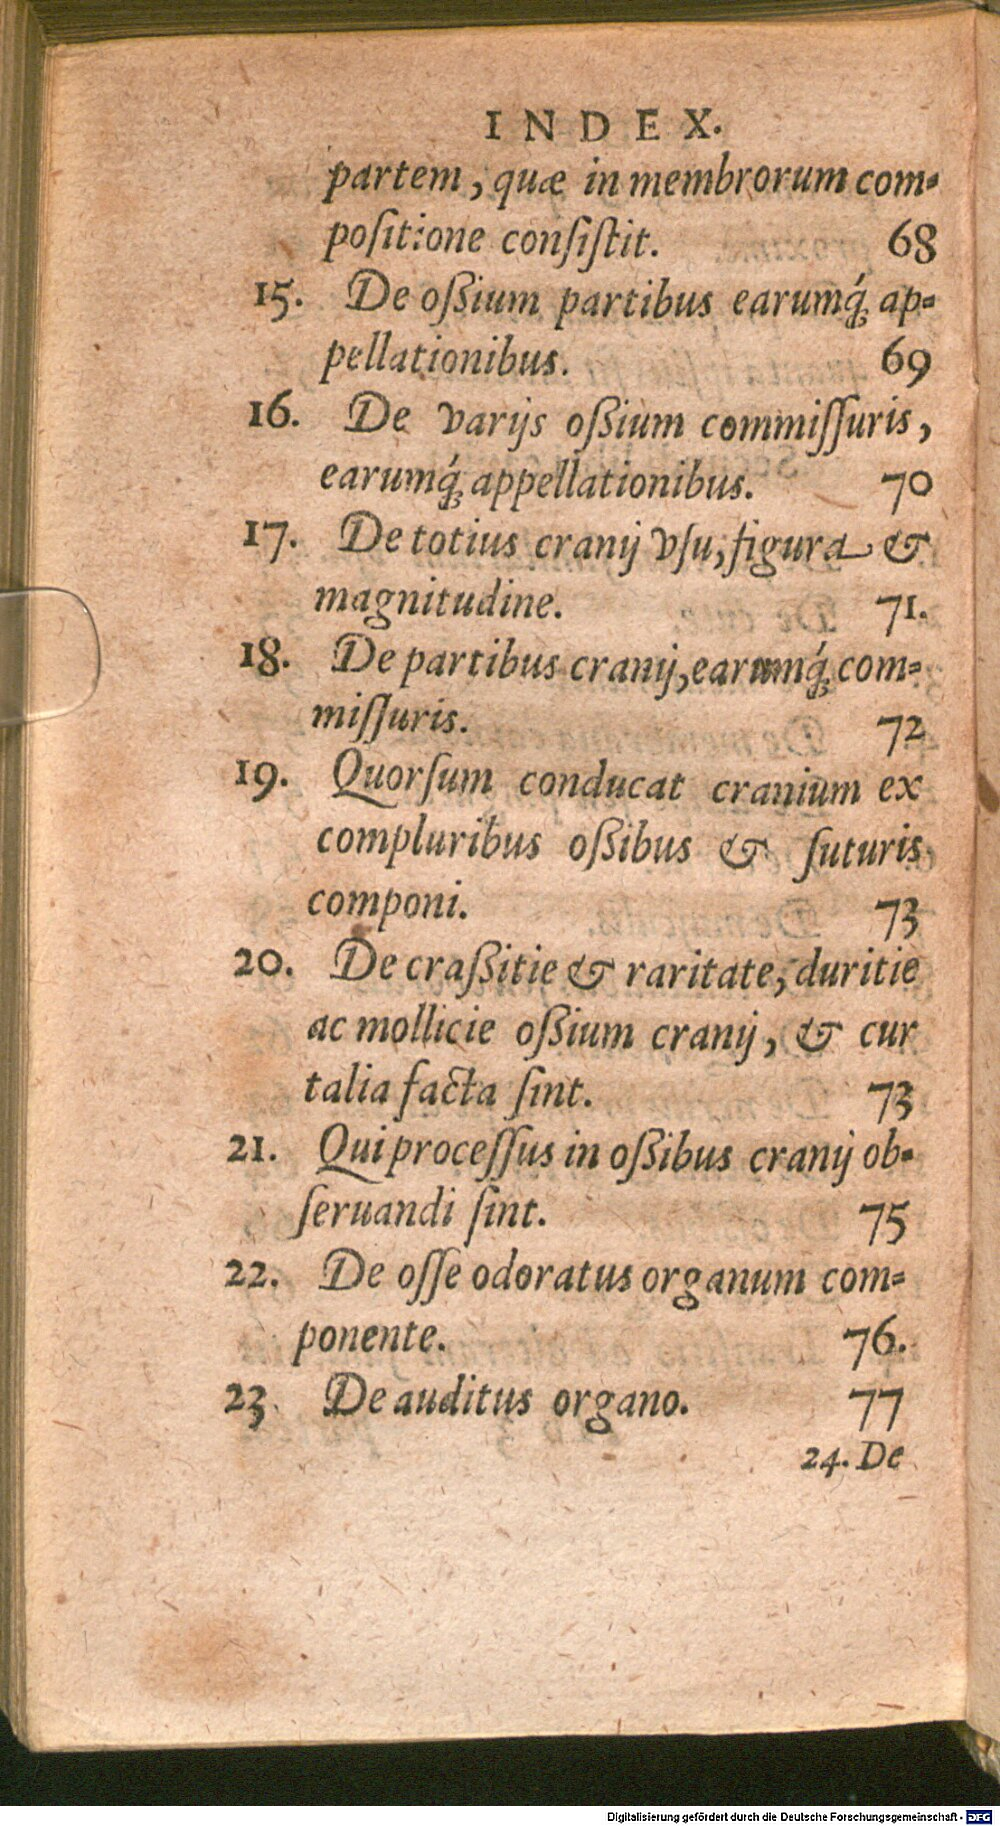 INDEX.
partem, quæ in membrorum com-
poſitione conſiſtit. 68
15. De oßium partibus earumq́; ap-
pellationibus. 69
16. De varijs oßium commiſſuris,
earumq́; appellationibus. 70
17. De totius cranij vſu, figura &
magnitudine. 71.
18. De partibus cranij, earumq́; com-
miſſuris. 72
19. Quorſum conducat cranium ex
compluribus oßibus & ſuturis
componi. 73
20. De craßitie & raritate, duritie
ac mollicie oßium cranij, & cur
talia facta ſint. 73
21. Qui proceſſus in oßibus cranij ob-
ſeruandi ſint. 75
22. De oſſe odoratus organum com-
ponente. 76.
23. De auditus organo. 77
24. De
Digitalisierung gefördert durch die Deutsche Forschungsgemeinschaft - DFG